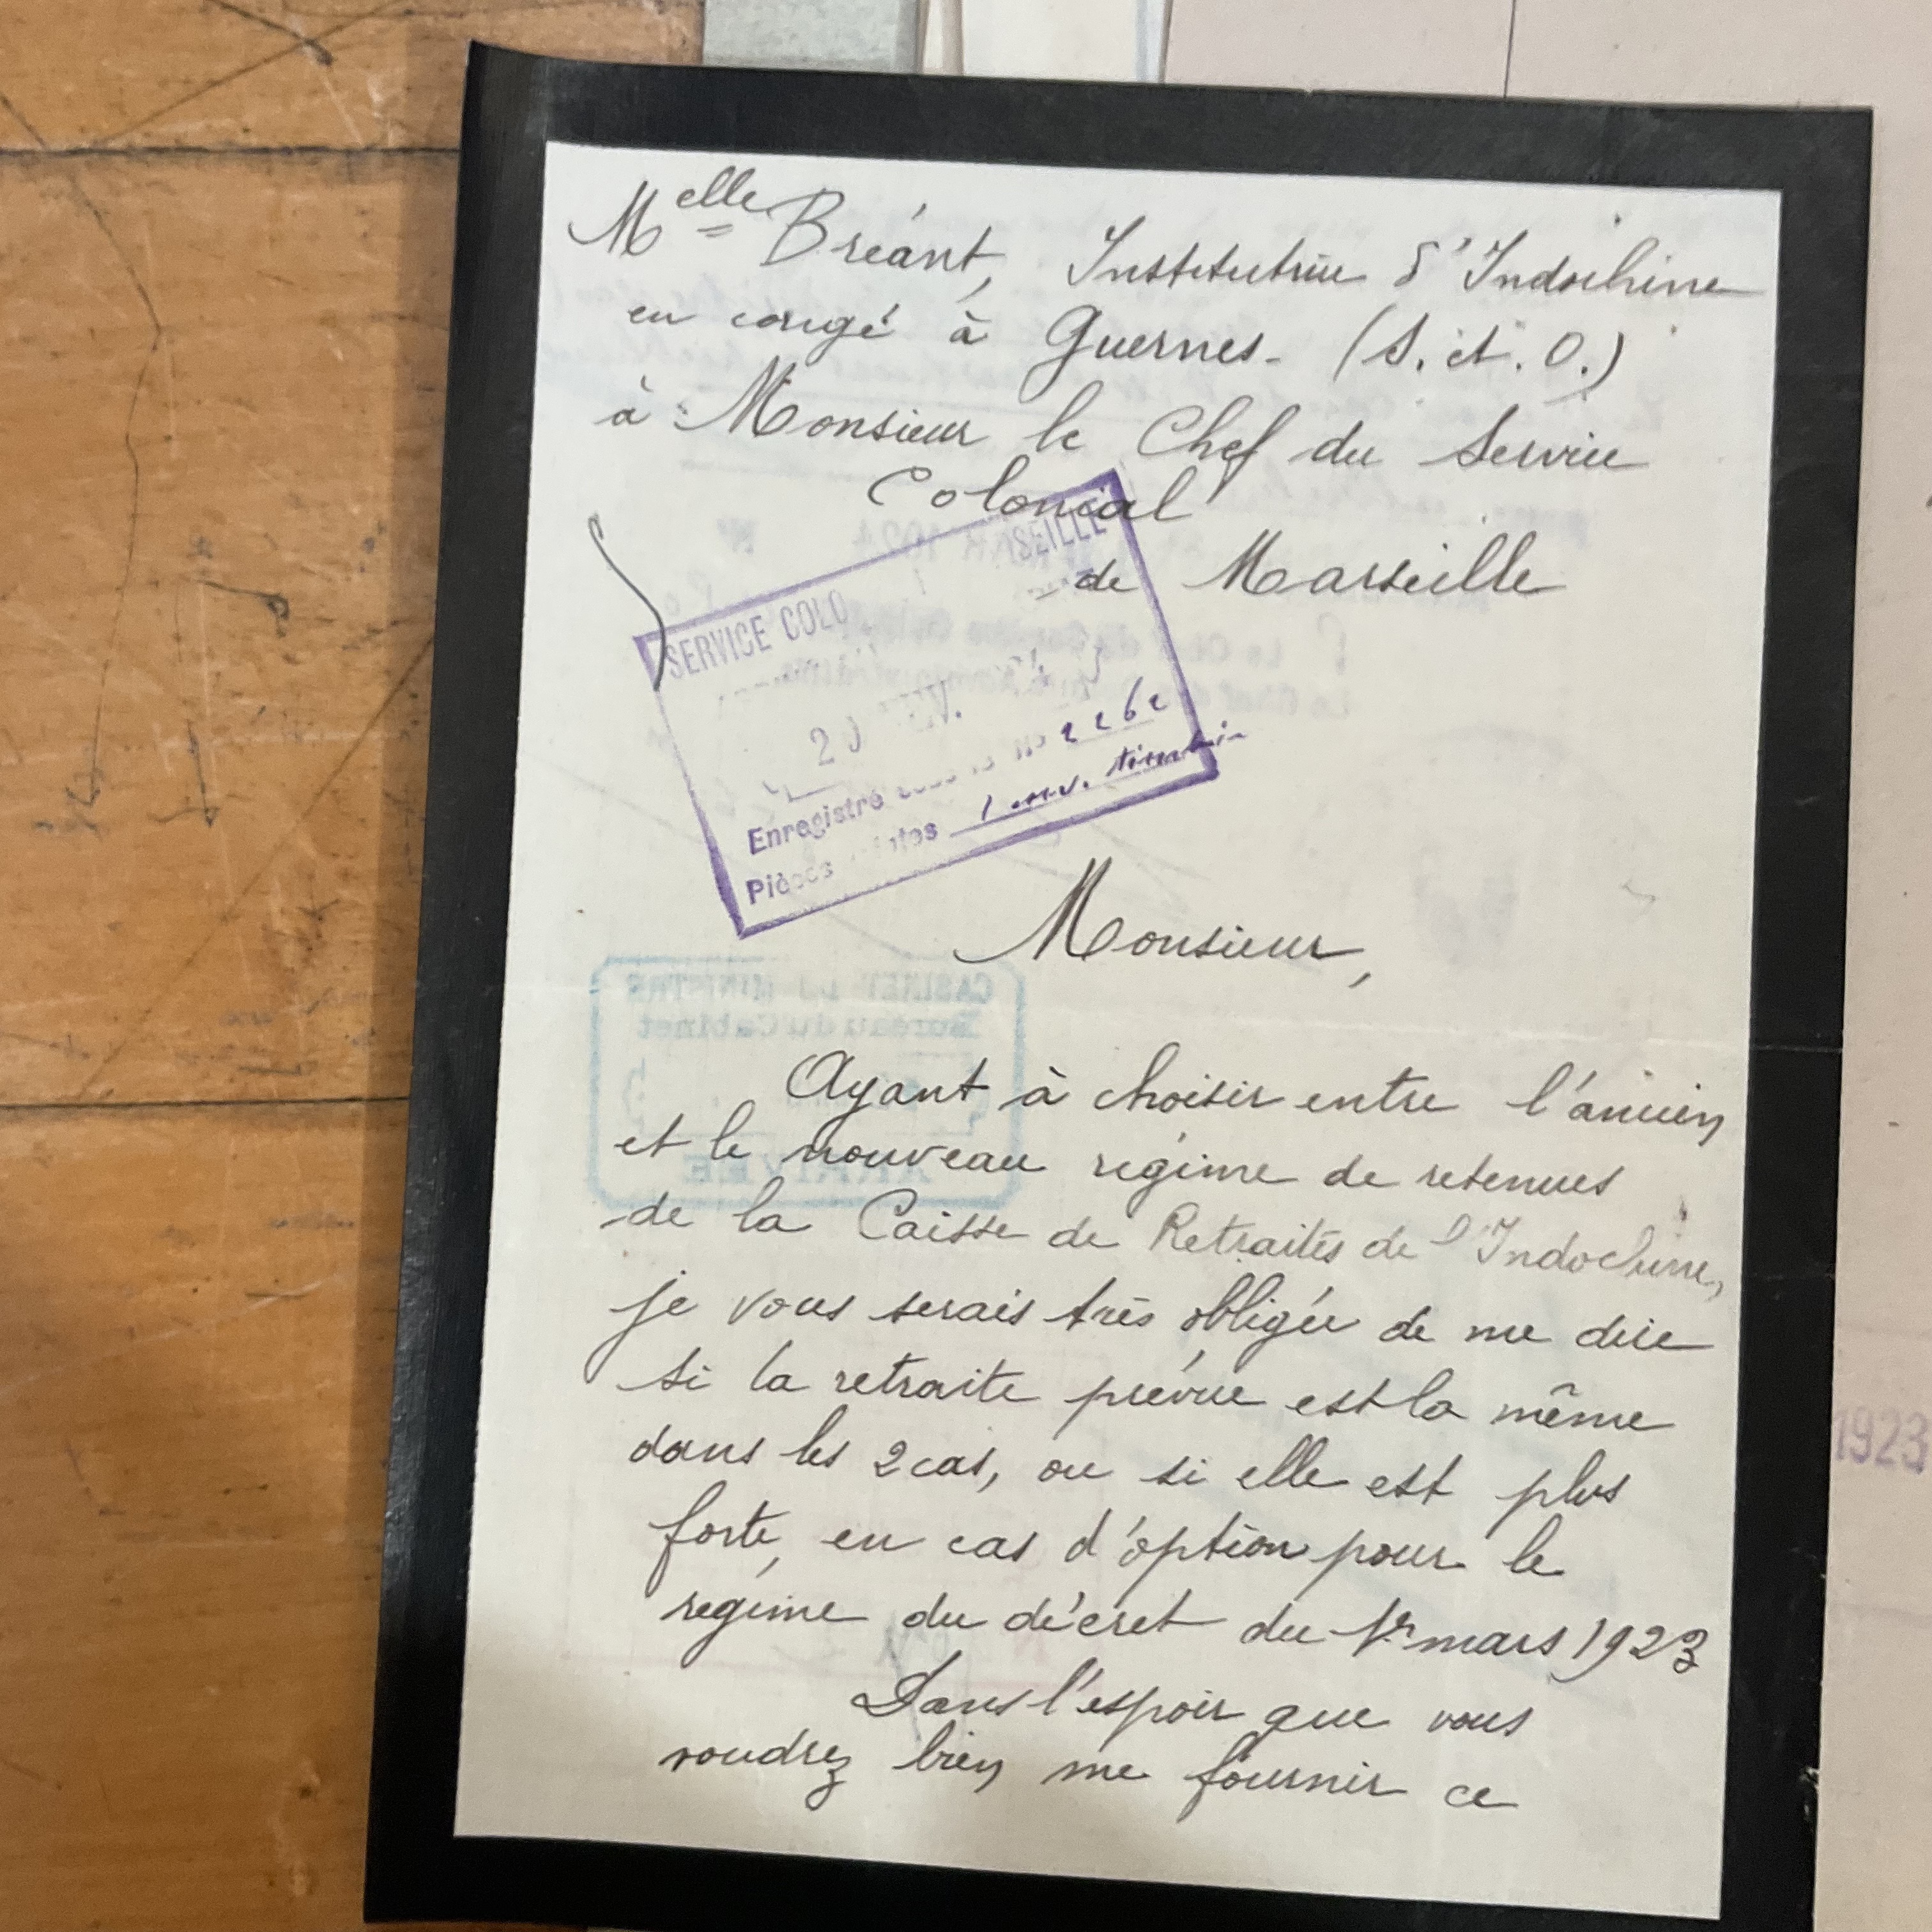 Melle Bréant, Institutrice d'Indochine
en congé à Guernes. (S. et. O.)
à Monsieur le Chef du Service
Colonial
de Marseille
SERVICE COLO SEILLE
20
Enregistré nº 2262
Pièces 1 env. timbrée
Monsieur,
CABINET DU MINISTRE
Bureau du Cabinet
ARRIVÉE
Ayant à choisir entre l'ancien
et le nouveau régime de retenues
de la Caisse de Retraites de l'Indochine,
je vous serais très obligée de me dire
si la retraite prévue est la même
dans les 2 cas, ou si elle est plus
forte, en cas d'option pour le
régime du décret du 1er mars 1923
Dans l'espoir que vous
voudrez bien me fournir ce
1923